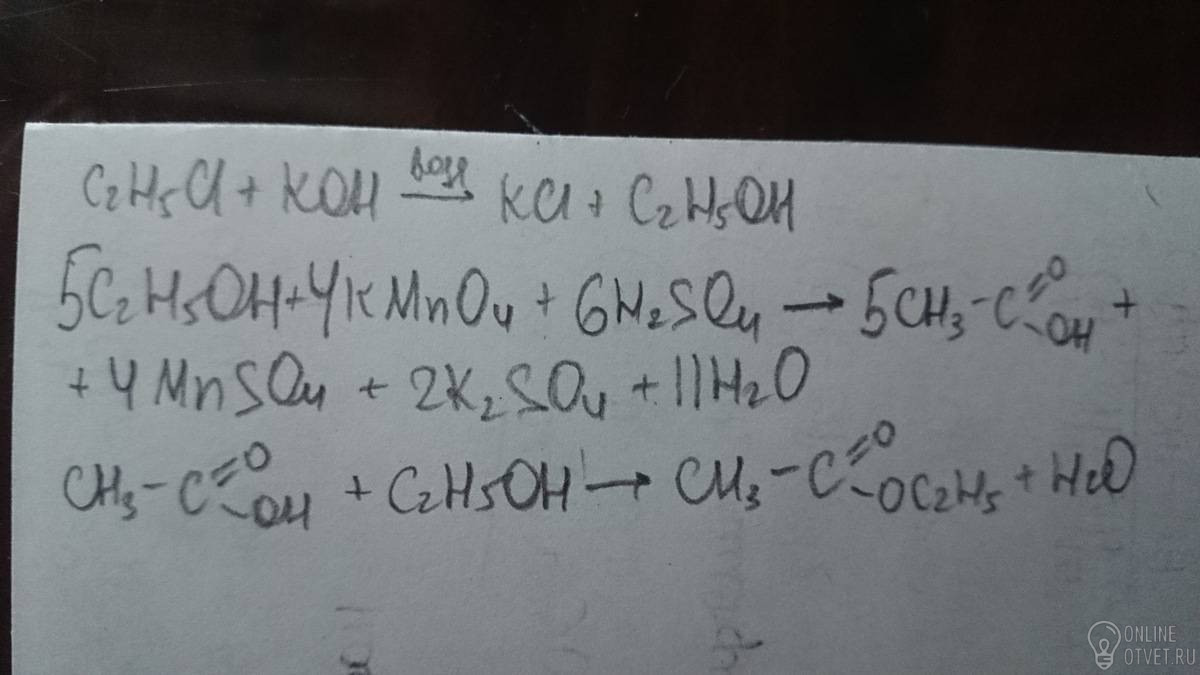 C₂H₅Cl + KOH →(водн) KCl + C₂H₅OH
5C₂H₅OH + 4KMnO₄ + 6H₂SO₄ → 5CH₃-C(=O)-OH +
+ 4MnSO₄ + 2K₂SO₄ + 11H₂O
CH₃-C(=O)-OH + C₂H₅OH → CH₃-C(=O)-OC₂H₅ + H₂O
ONLINE
OTVET.RU